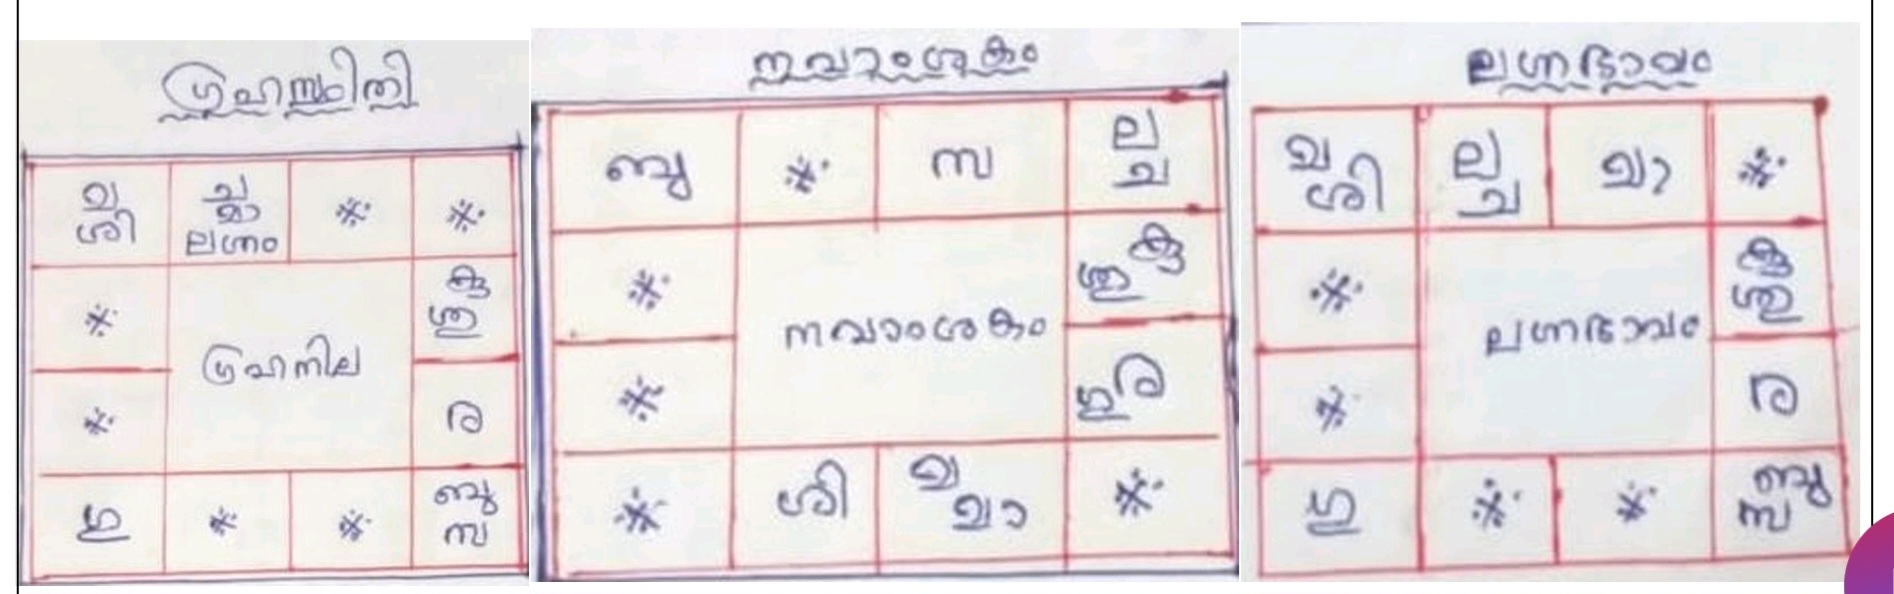 ഗ്രഹസ്ഥിതി
ശി
ച
മാ
ലഗ്നം
കു
ശു
ഗ്രഹനില
ര
ഗു
ബു
സ
നവാംശകം
ബു
സ
ല
ച
കു
ശു
നവാംശകം
ര
ഗു
ശി
മാ
ലഗ്നഭാവം
ശി
ല
ച
മാ
കു
ശു
ലഗ്നഭാവം
ര
ഗു
ബു
സ